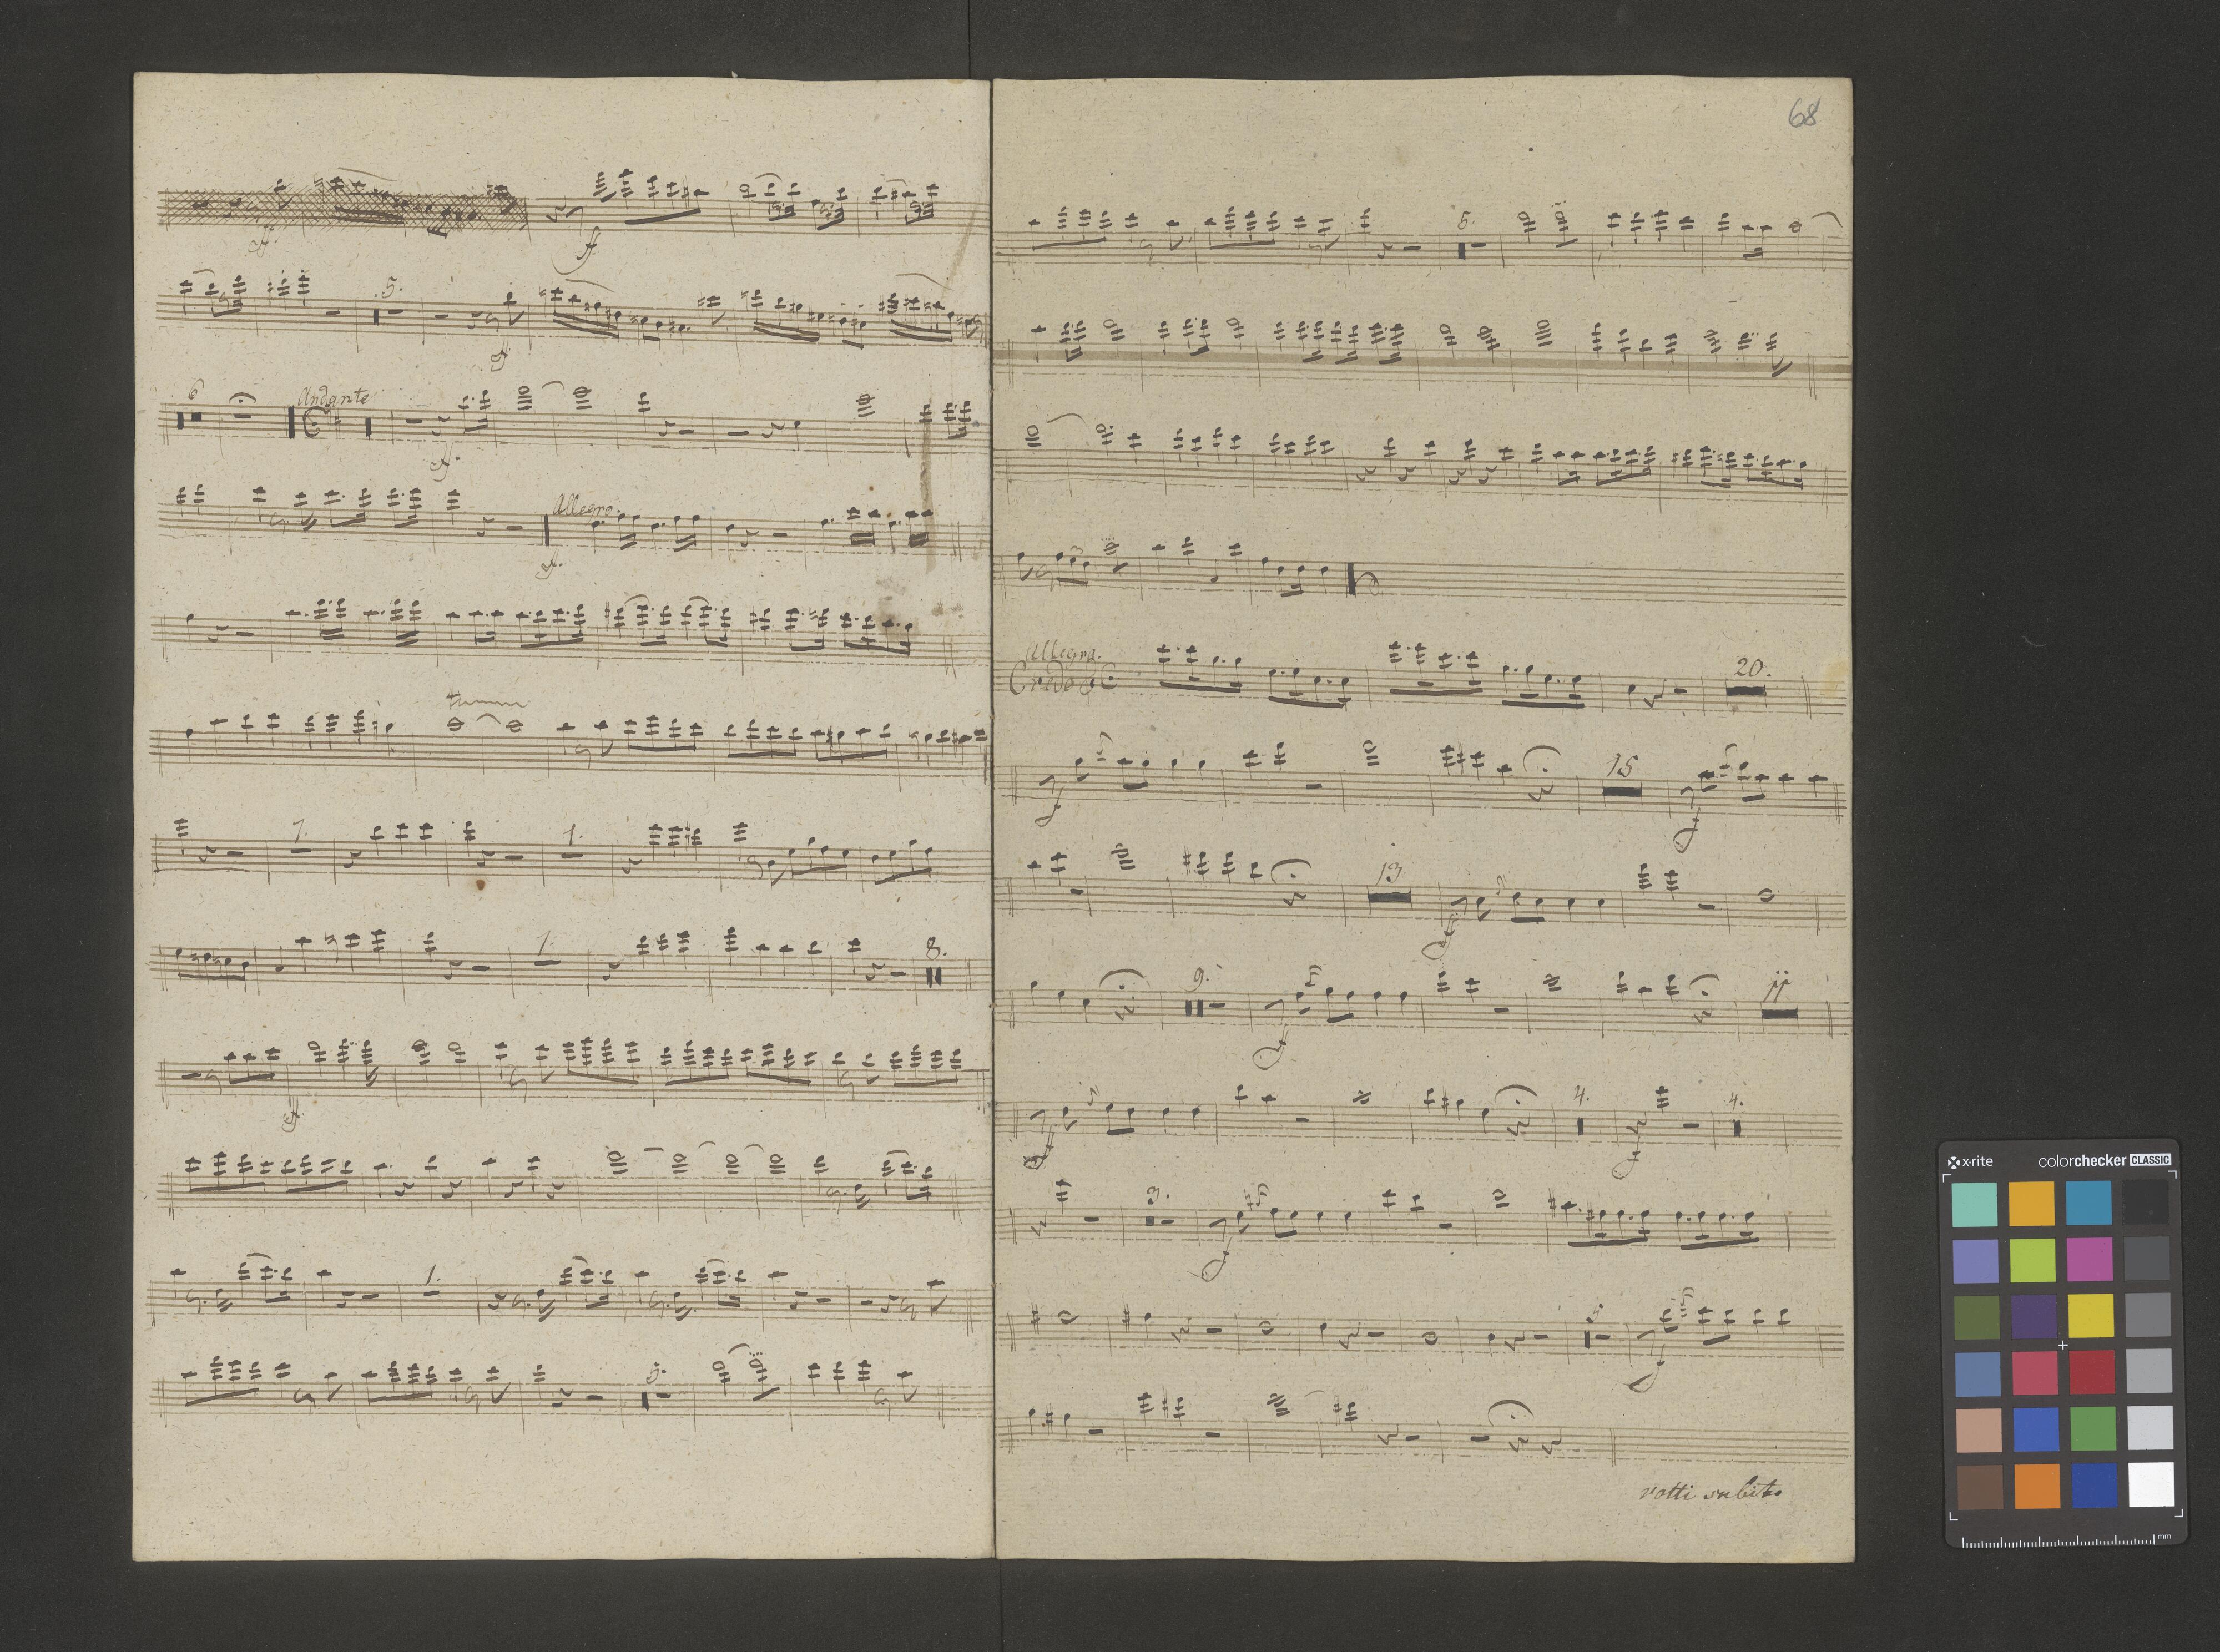 f.
f
.5.
f.
6
Andante
f.
Allegro.
f.
1.
1.
1.
8.
f.
1.
5.
68
5.
Allegro.
Credo
20.
f
15
f
13
f
9.
f
jj
f
4.
f
4.
3.
f
5.
f
volti subito
x·rite
colorchecker CLASSIC
mm